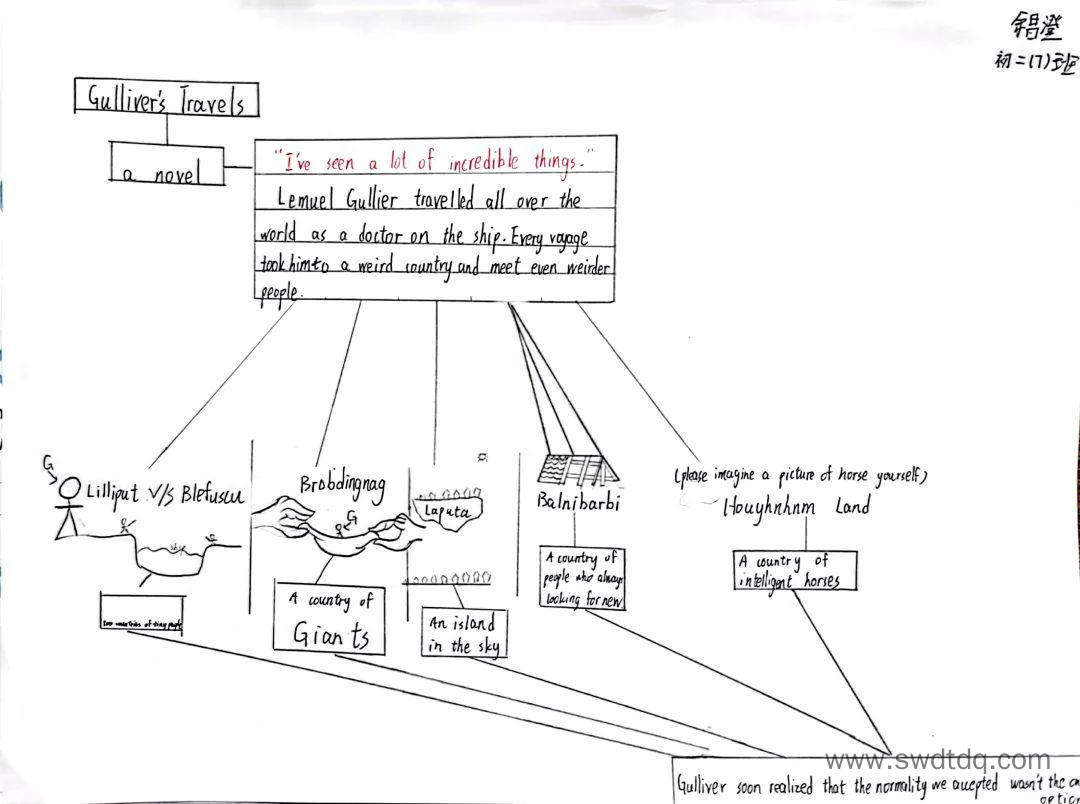 锠澄
初二(7)班
Gulliver's Travels
a novel
"I've seen a lot of incredible things."
Lemuel Gullier travelled all over the
world as a doctor on the ship. Every voyage
took him to a weird country and meet even weirder
people.
G
Lilliput V/S Blefuscu
ship
two countries of tiny people
Brobdingnag
G
A country of
Giants
Laputa
An island
in the sky
Balnibarbi
A country of
people who always
looking for new
(please imagine a picture of horse yourself)
Houyhnhnm Land
A country of
intelligent horses
www.swdtdq.com
Gulliver soon realized that the normality we accepted wasn't the on
option